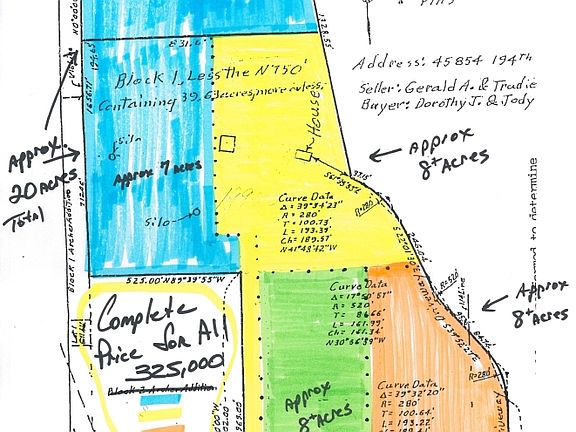 N0°00'00
831.0'
1328.55
Address: 45854 194th
Seller: Gerald A. & Trudie
Buyer: Dorothy J. & Jody
Block 1, Less the N 750'
Containing 39.63 acres, more or less.
1656.71'
House
Silo
Approx.
20 Acres
Total
Approx 7 Acres
Approx
8+ Acres
Silo
Curve Data
Δ = 39°34'23"
R = 280'
T = 100.73'
L = 193.39'
Ch = 189.57'
N 41°43'42"W
R=280'
Block 1 Archer Addition
and to determine
525.00' N89°39'55"W
Curve Data
Δ = 17°50'57"
R = 520'
T = 81.66'
L = 161.99'
Ch = 161.34'
N30°56'59"W
R=520'
Approx
8+ Acres
Complete
Price for All
325,000
Block 2 Archer Addition
Approx
8+ Acres
Curve Data
Δ = 39°32'20"
R = 280'
T = 100.64'
L = 193.22'
R=280'
Driveway
969.00